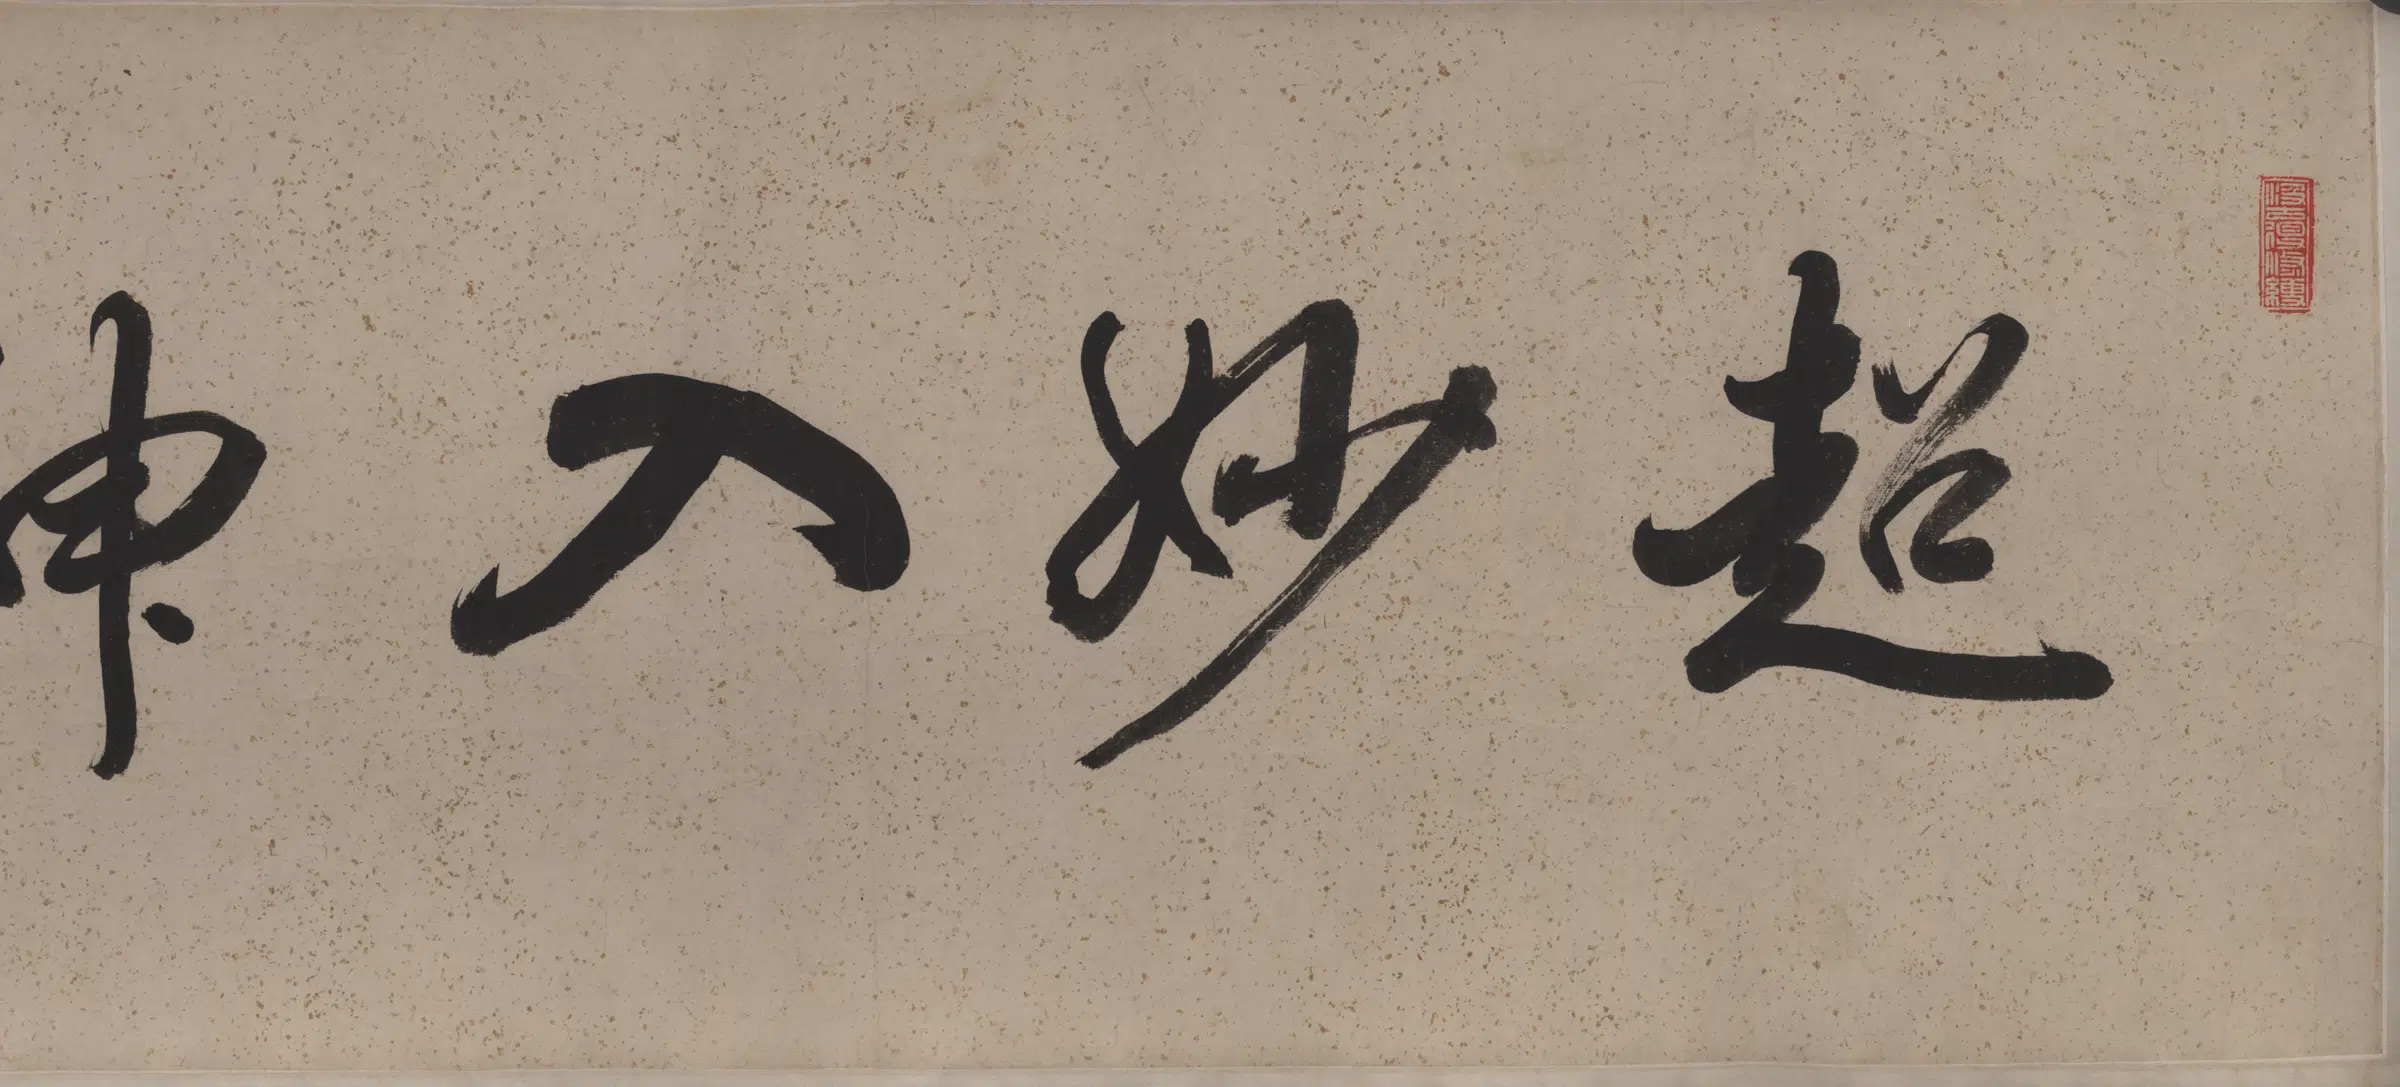 超妙入神